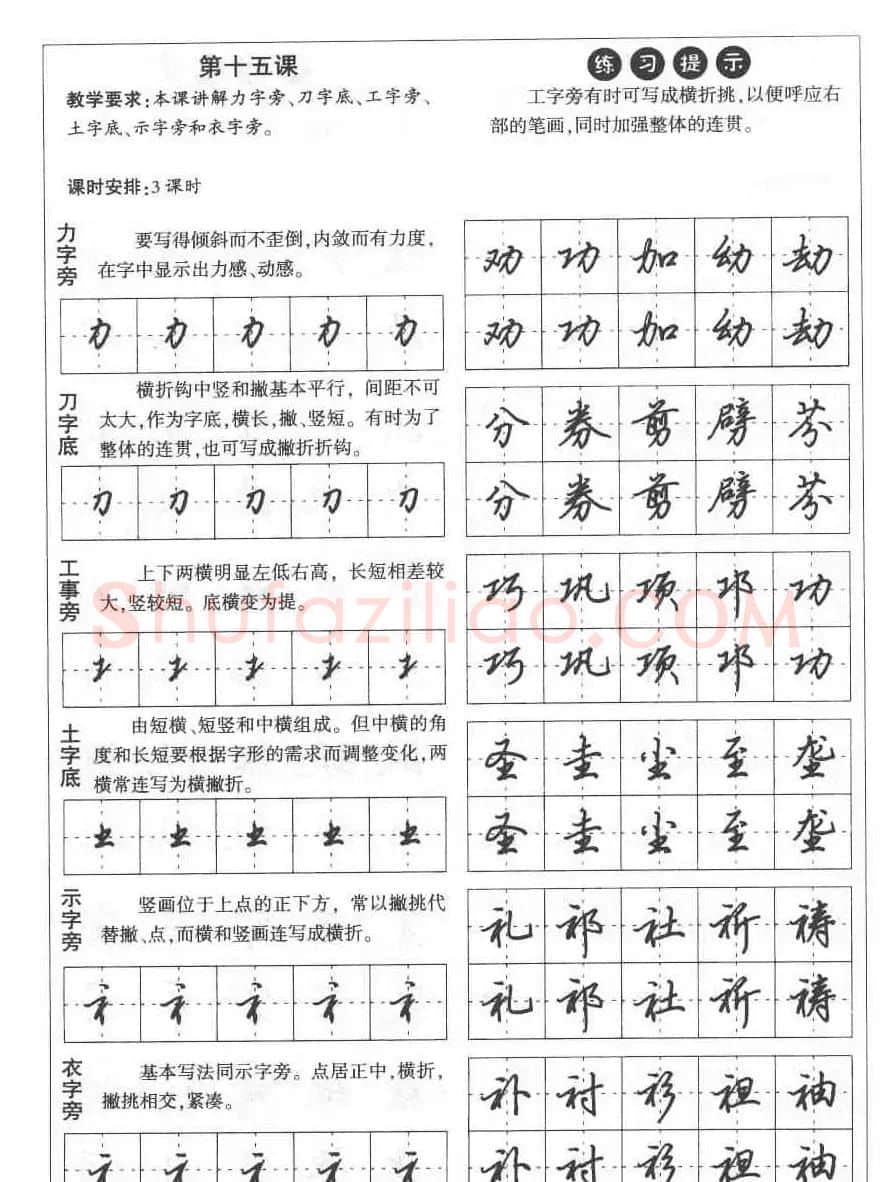 第十五课
教学要求:本课讲解力字旁、刀字底、工字旁、
土字底、示字旁和衣字旁。
课时安排:3课时
练习提示
工字旁有时可写成横折挑,以便呼应右
部的笔画,同时加强整体的连贯。
力字旁
要写得倾斜而不歪倒,内敛而有力度,
在字中显示出力感、动感。
力 力 力 力 力
劝 功 加 幼 劫
劝 功 加 幼 劫
刀字底
横折钩中竖和撇基本平行,间距不可
太大,作为字底,横长,撇、竖短。有时为了
整体的连贯,也可写成撇折折钩。
刀 刀 刀 刀 刀
分 券 剪 劈 芬
分 券 剪 劈 芬
工事旁
上下两横明显左低右高,长短相差较
大,竖较短。底横变为提。
工 工 工 工 工
巧 巩 项 邛 功
巧 巩 项 邛 功
土字底
由短横、短竖和中横组成。但中横的角
度和长短要根据字形的需求而调整变化,两
横常连写为横撇折。
土 土 土 土 土
圣 圭 尘 至 垄
圣 圭 尘 至 垄
示字旁
竖画位于上点的正下方,常以撇挑代
替撇、点,而横和竖画连写成横折。
礻 礻 礻 礻 礻
礼 祁 社 祈 祷
礼 祁 社 祈 祷
衣字旁
基本写法同示字旁。点居正中,横折,
撇挑相交,紧凑。
衤 衤 衤 衤 衤
补 衬 衫 袒 袖
补 衬 衫 袒 袖
Shufaziliao.COM